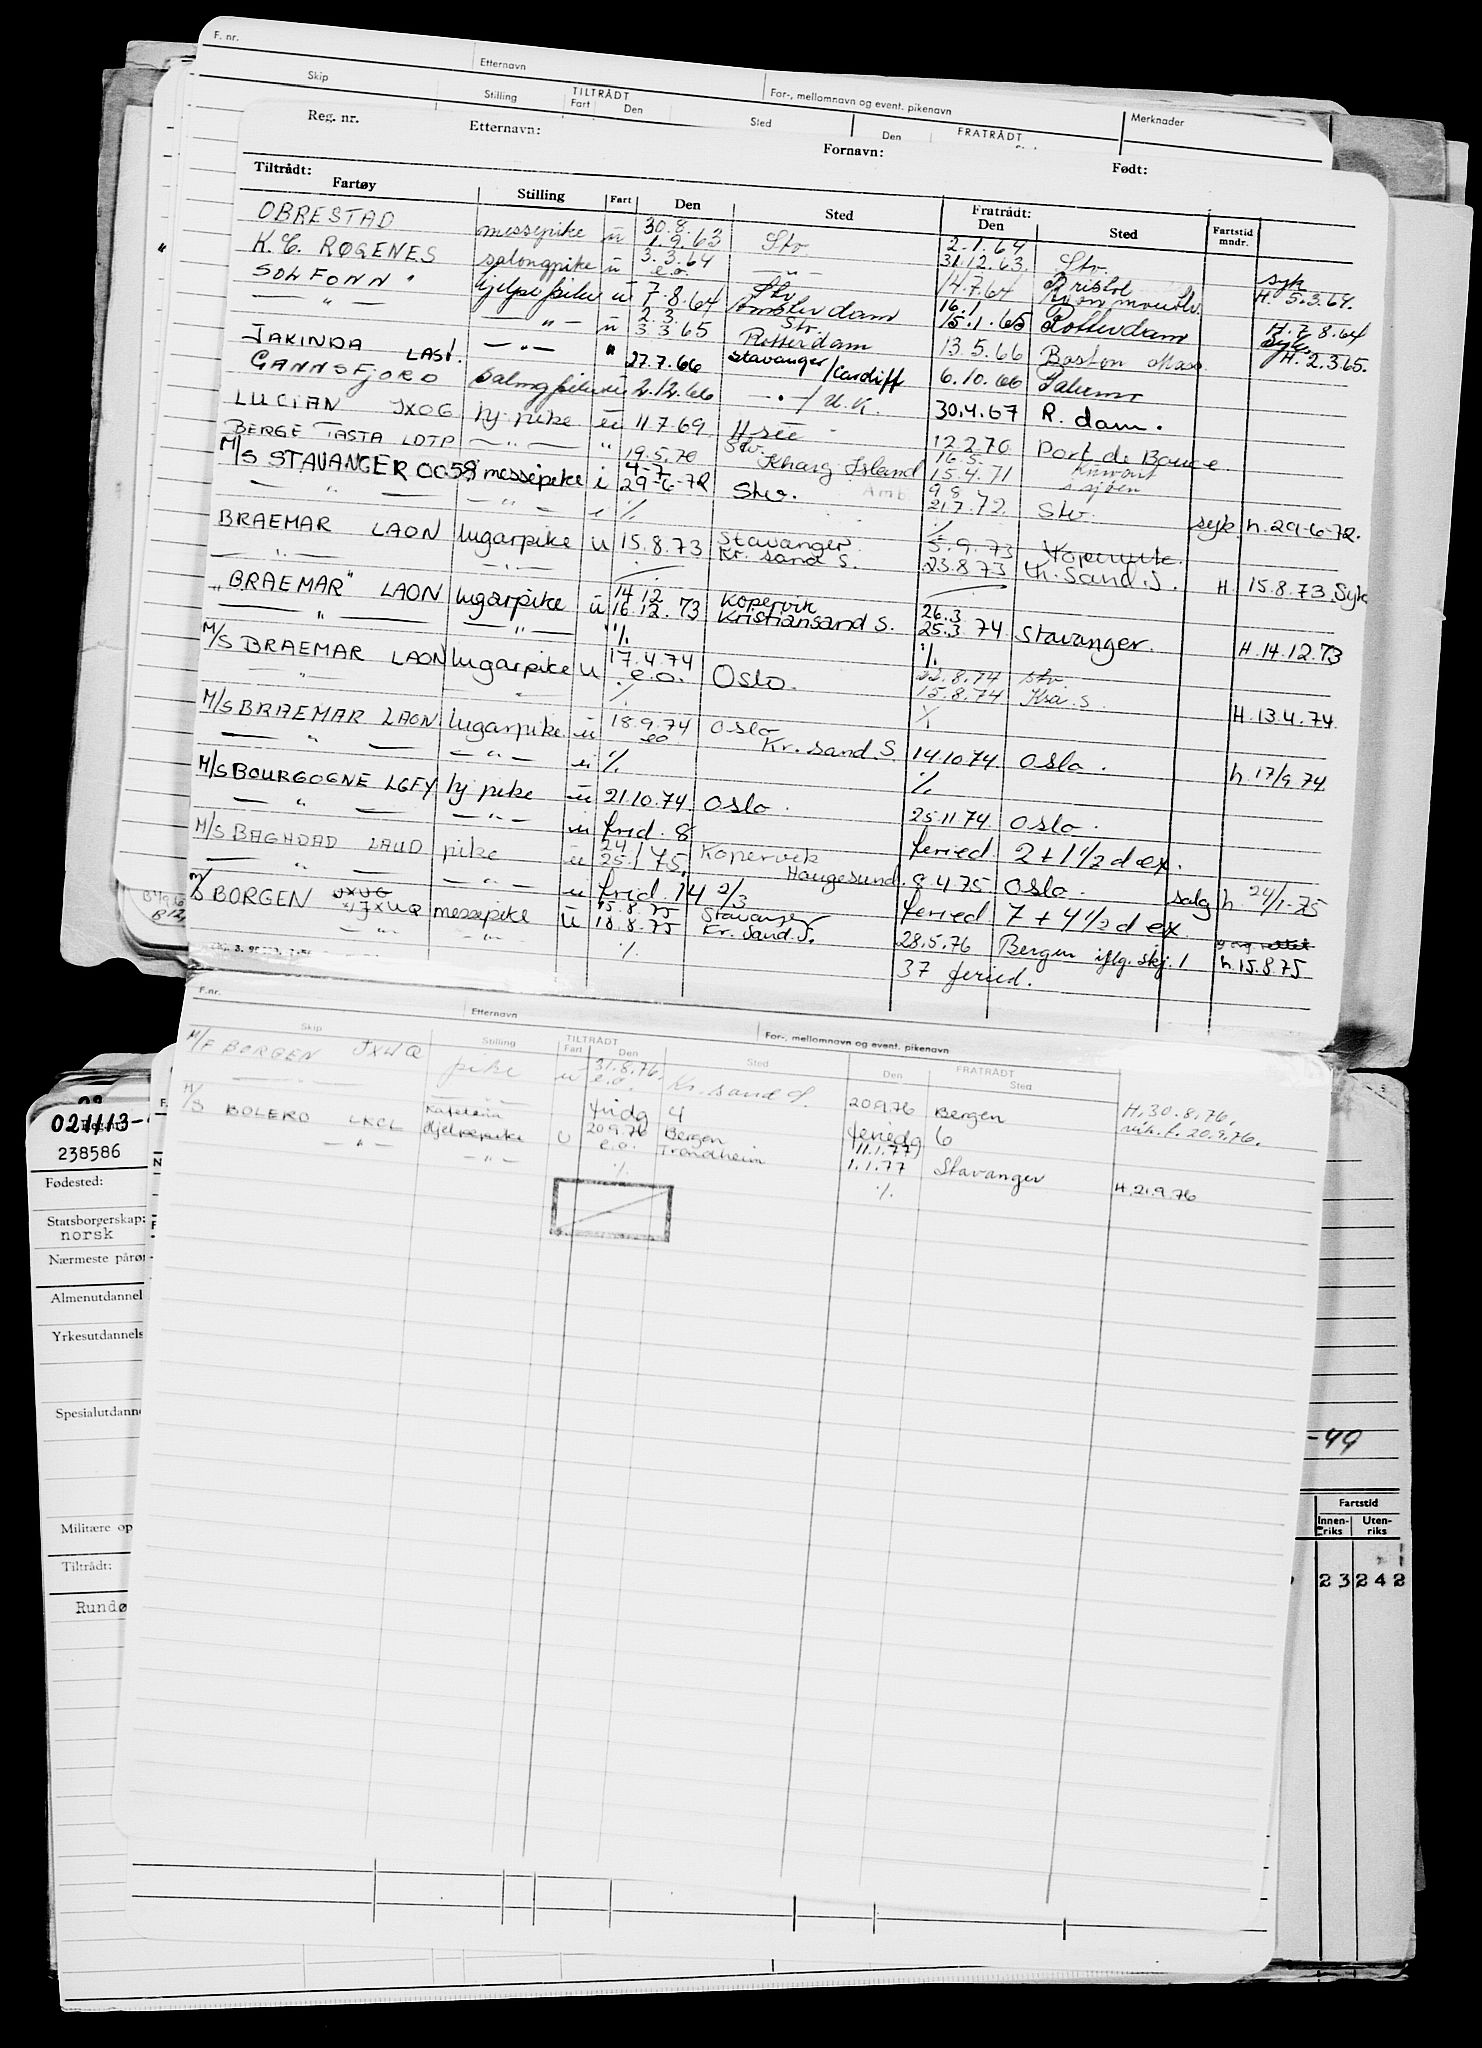 F. nr. Etternavn For-, mellomnavn og event. pikenavn
Skip Stilling TILTRÅDT Fart Den Sted Den FRATRÅDT Merknader
Reg. nr. Etternavn: Fornavn: Født:
Tiltrådt: Fartøy Stilling Fart Den Sted Fratrådt: Den Sted Fartstid mndr.
OBRESTAD messepike u 30.8. 1.9.63 Stv. 2.1.64
K. C. RØGENES salongpike u 3.3.64 e.o. — " — 31.12.63. Stv. syk
SOLFONN hjelpepike u 7.8.64 Stv. Amsterdam 14.7.64 Bristol H. 5.3.64.
— " — — " — u 2.3. 3.3.65 Stv. Rotterdam 16.1 15.1.65 Rotterdam H. 7.8.64
JAKINDA LAST. — " — " 27.7.66 Stavanger/Cardiff 13.5.66 Boston Mass. H. 2.3.65.
GANNSFJORD 2.12.66 — " —/U.K. 6.10.66
LUCIAN JXOG hj. pike u 11.7.69 30.4.67 R. dam.
BERGE TASTA LDTP — " — " 19.5.70 Stv. Kharg Island 12.2.70 Port de Bouc
M/S STAVANGER messepike i 4-7- 29-6-72 Stv. 16.5. 15.4.71 Kuwait i sjøen
— " — — " — i ·/. 21.7.72 Stv. syk h. 29-6-72.
BRAEMAR LAON lugarpike u 15.8.73 Stavanger. Kr. sand S. ·/. 5.9.73 Kopervik.
— " — — " — 23.8.73 Kr. Sand. S. H. 15.8.73. Syk
"BRAEMAR" LAON lugarpike u 14.12 16.12.73 Kopervik Kristiansand S. 26.3. 25.3.74 Stavanger.
— " — — " — " ·/. ·/. H. 14.12.73
M/S BRAEMAR LAON lugarpike u 17.4.74 e.o. Oslo. 22.8.74 stv
" " ·/. 15.8.74 Krs. S. H. 13.4.74.
M/S BRAEMAR LAON lugarpike u 18.9.74 eo Oslo Kr. Sand. S 14.10.74. Oslo.
— " — — " — u ·/. ·/. h. 17/9.74
M/S BOURGOGNE LGFY hj pike u 21.10.74. Oslo. 25.11.74. Oslo.
— " — — " — u frid. 8 feried 2 + 1 1/2 d ex.
M/S BAGHDAD LAUD pike u 24 25.1.75. Kopervik Haugesund. 8.4.75 Oslo. salg h 24/1-75
— " — — " — u frid. 14 2/3 feried 7 + 4 1/2 d ex.
M/S BORGEN JXUQ messepike u 15.8.75 18.8.75 Stavanger Kr. Sand. S. 28.5.76 Bergen iflg. skj. 1 h. 15.8.75
— " — " ·/. 37 feried.
F.nr. Etternavn For-, mellomnavn og event. pikenavn
Skip Stilling TILTRÅDT Fart Den Sted Den FRATRÅDT Sted
M/F BORGEN JXUQ pike u 31.8.76. e.o. Kr. sand S. 20.9.76 Bergen H. 30.8.76.
— " — fridg 4 feriedg 6 vik. t. 20.9.76.
M/S BOLERO LKCL Kafeteria Hjelpepike U 20.9.76 e.o. Bergen Trondheim (11.1.77) 1.1.77 Stavanger
— " — — " — ·/. ·/. H. 21.9.76
021113-
238586
Fødested:
Statsborgerskap:
norsk
Nærmeste pårør
Almenutdannel
Yrkesutdannels
Spesialutdann
-49
Militære op
Tiltrådt:
Rundø
Fartstid
Innenriks Utenriks
23 242